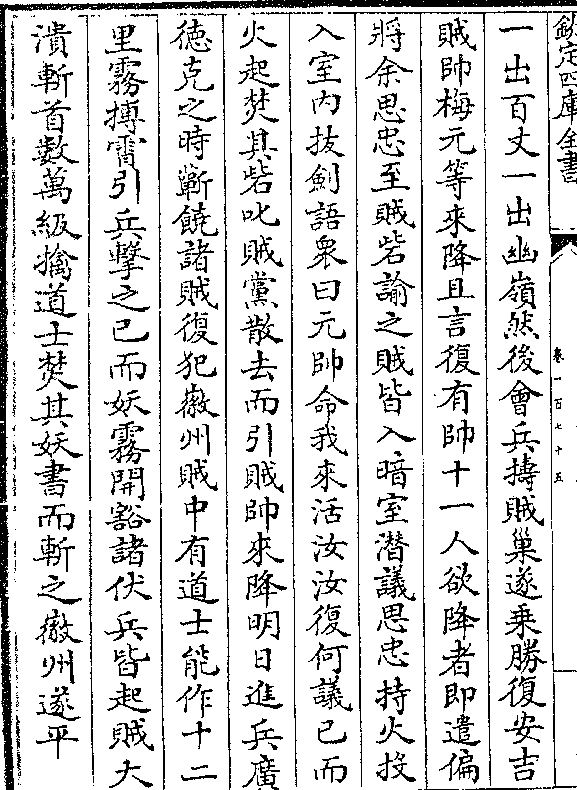 欽定四庫全書
卷一百七十五
一出百丈一出幽嶺然後會兵擣賊巢遂乗勝復安吉
賊帥梅元等來降且言復有帥十一人欲降者即遣偏
將余思忠至賊砦諭之賊皆入暗室潛議思忠持火投
入室内拔劍語衆曰元帥命我來活汝汝復何議已而
火起焚其砦叱賊黨散去而引賊帥來降明日進兵廣
徳克之時蘄饒諸賊復犯徽州賊中有道士能作十二
里霧摶霄引兵擊之已而妖霧開豁諸伏兵皆起賊大
潰斬首數萬級擒道士焚其妖書而斬之徽州遂平